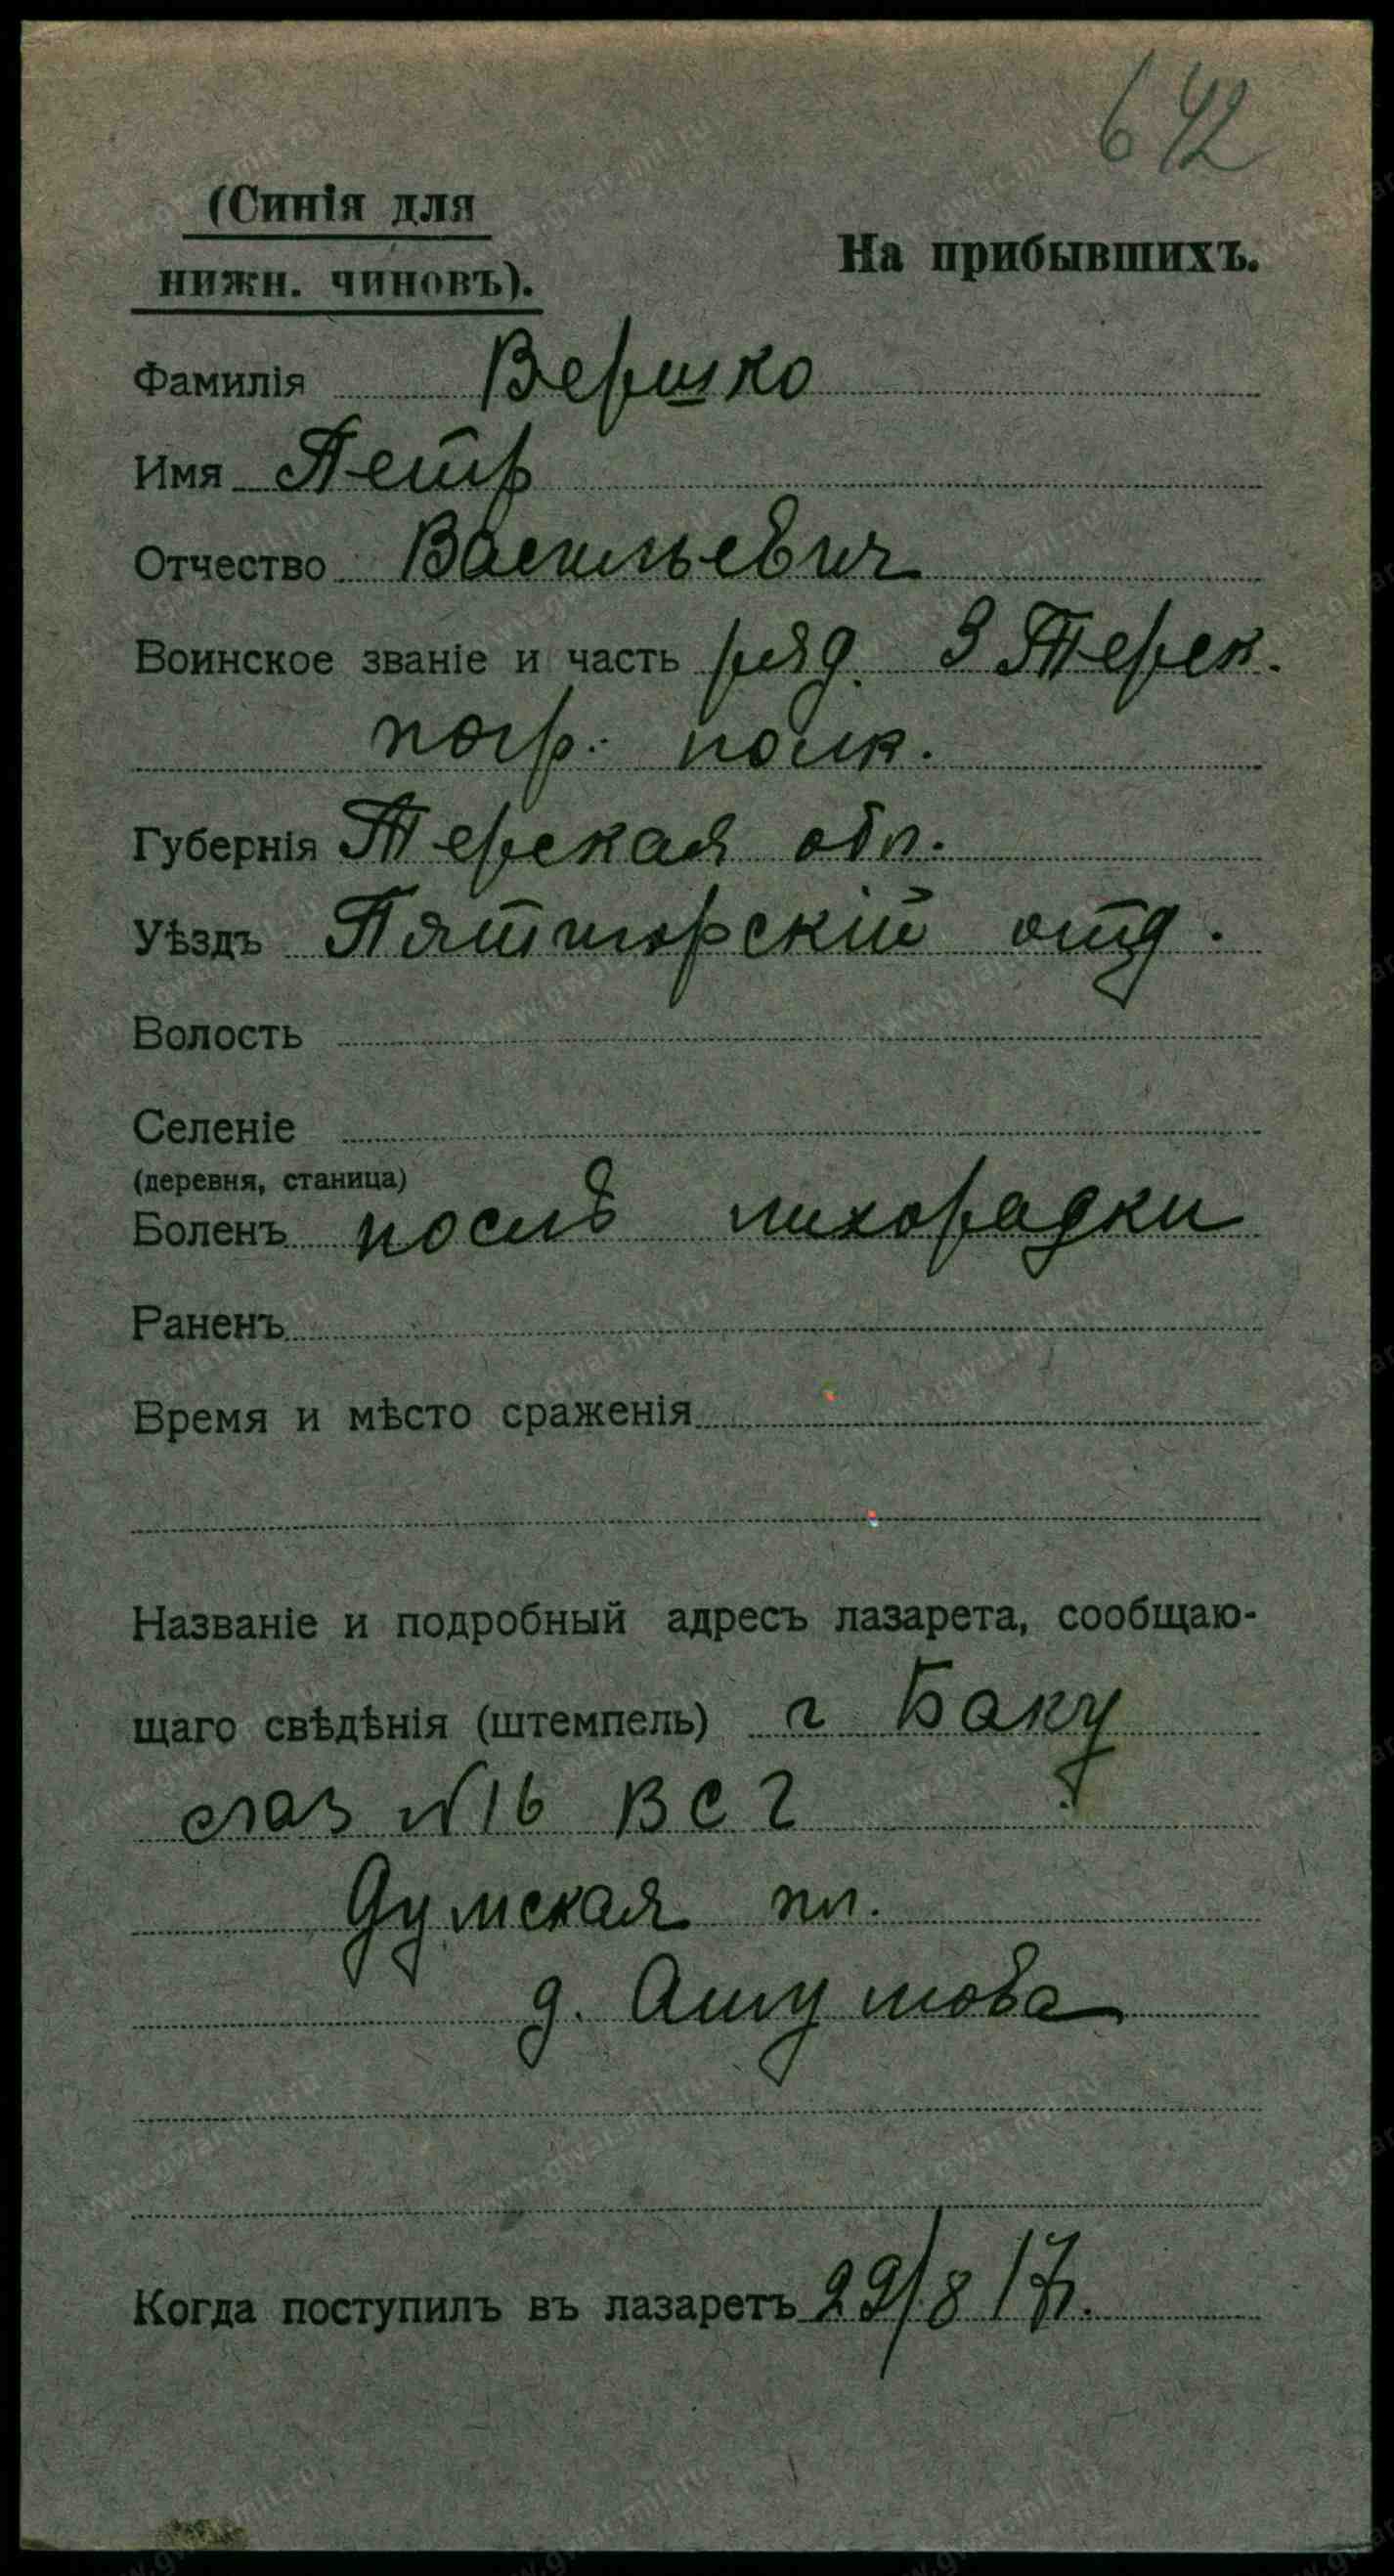 642
(Синія для
нижн. чиновъ).
На прибывшихъ.
Фамилія Вершко
Имя Петр
Отчество Васильевич
Воинское званіе и часть ряд. 3 Терек.
погр. полк.
Губернія Терская обл.
Уѣздъ Пятигорскій отд.
Волость
Селеніе
(деревня, станица)
Боленъ послѣ лихорадки
Раненъ
Время и мѣсто сраженія
Названіе и подробный адресъ лазарета, сообщаю-
щаго свѣдѣнія (штемпель) г Баку
лаз №16 В С Г
Думская пл.
д. Ашумова
Когда поступилъ въ лазаретъ 29/8 17г.